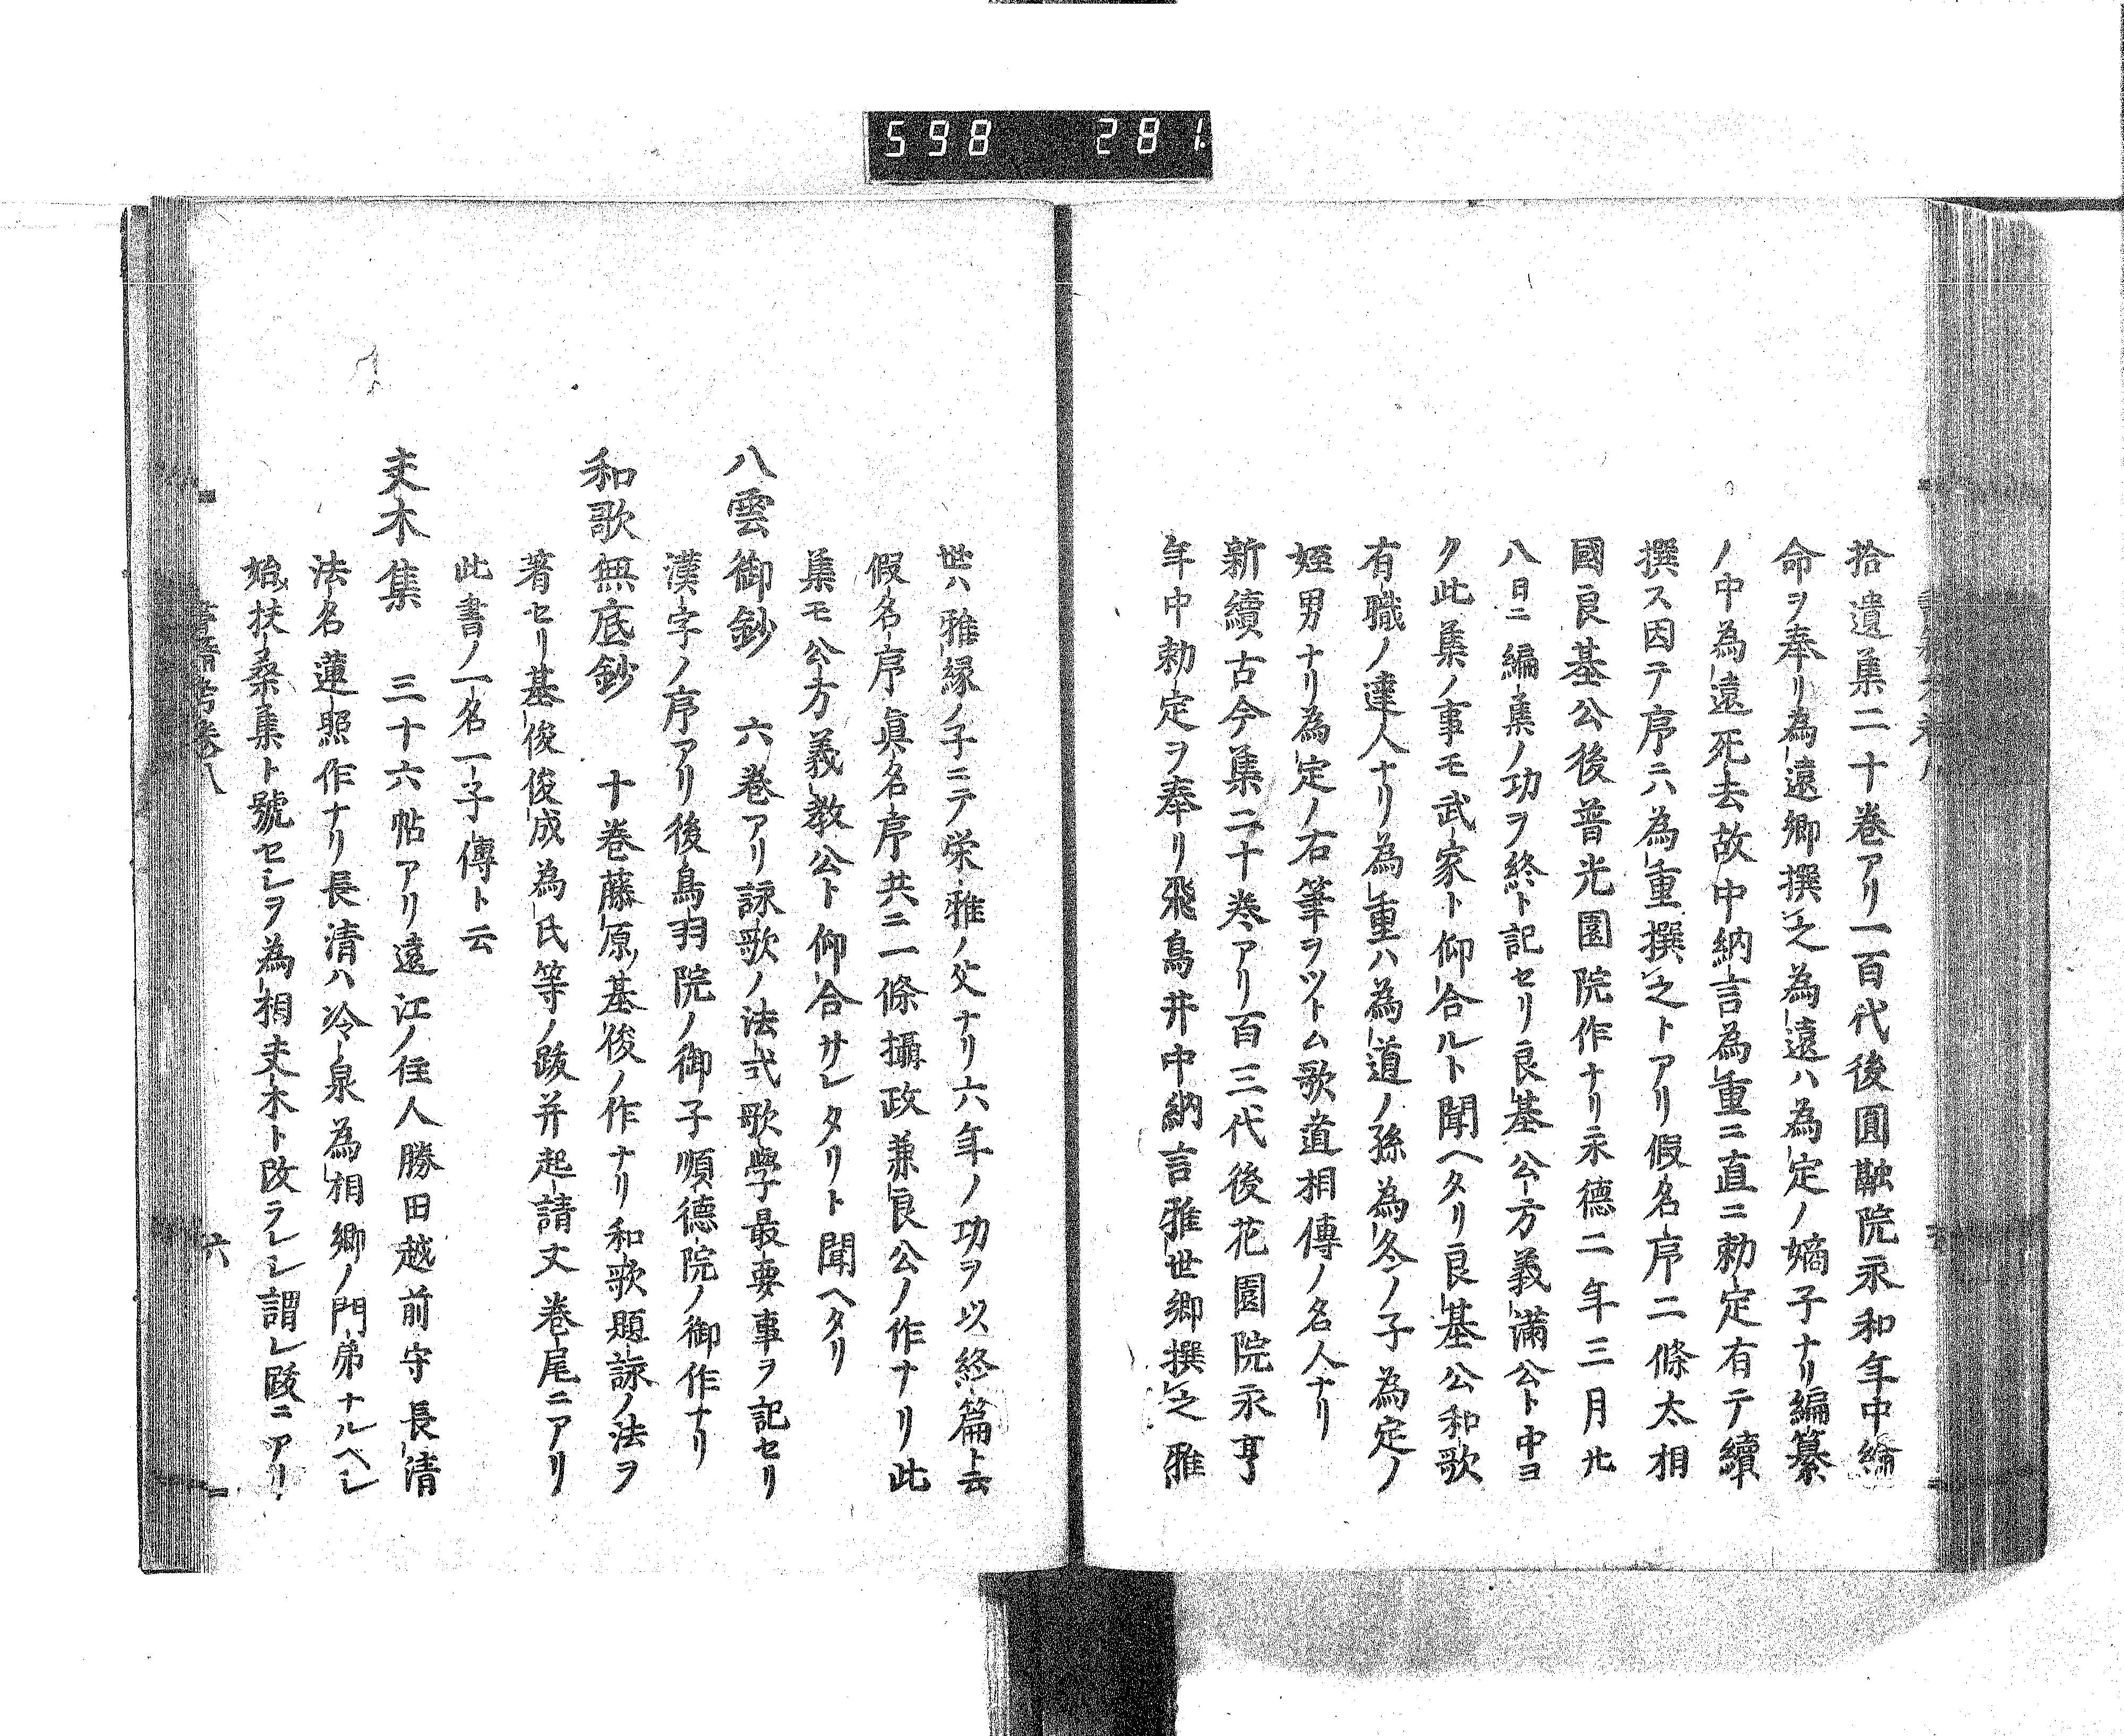 598 281
拾遺集二十巻アリ一百代後圓融院永和年中綸
命ヲ奉リ為遠卿撰之為遠ハ為定ノ嫡子ナリ編纂
ノ中為遠死去故中納言為重ニ直ニ勅定有テ續
撰ス因テ序ニハ為重撰之トアリ假名序二條太相
國良基公後普光園院作ナリ永德二年三月廿
八日ニ編集ノ功ヲ終ト記セリ良基公方義滿公ト中ヨ
ク此集ノ事モ武家ト仰合ルト聞ヘタリ良基公和歌
有職ノ達人ナリ為重ハ為道ノ孫為冬ノ子為定ノ
姪男ナリ為定ノ右筆ヲツトム歌道相傳ノ名人ナリ
新續古今集二十巻アリ百三代後花園院永亨
年中勅定ヲ奉リ飛鳥井中納言雅世卿撰之雅
世ハ雅縁ノ子ニテ栄雅ノ父ナリ六年ノ功ヲ以終篇ト云
假名序眞名序共ニ一條攝政兼良公ノ作ナリ此
集モ公方義教公ト仰合サレタリト聞ヘタリ
八雲御鈔 六巻アリ詠歌ノ法式歌學最要事ヲ記セリ
漢字ノ序アリ後鳥羽院ノ御子順德院ノ御作ナリ
和歌無底鈔 十巻藤原ノ基俊ノ作ナリ和歌題詠ノ法ヲ
著セリ基俊俊成為氏等ノ跋并起請文巻尾ニアリ
此書ノ一名一子傳ト云
夫木集 三十六帖アリ遠江ノ住人勝田越前守長清
法名蓮照作ナリ長清ハ冷泉為相卿ノ門弟ナルヘシ
始扶桑集ト號セシヲ為相夫木ト改ラレシ謂レ跋ニアリ
書籍考巻八 六